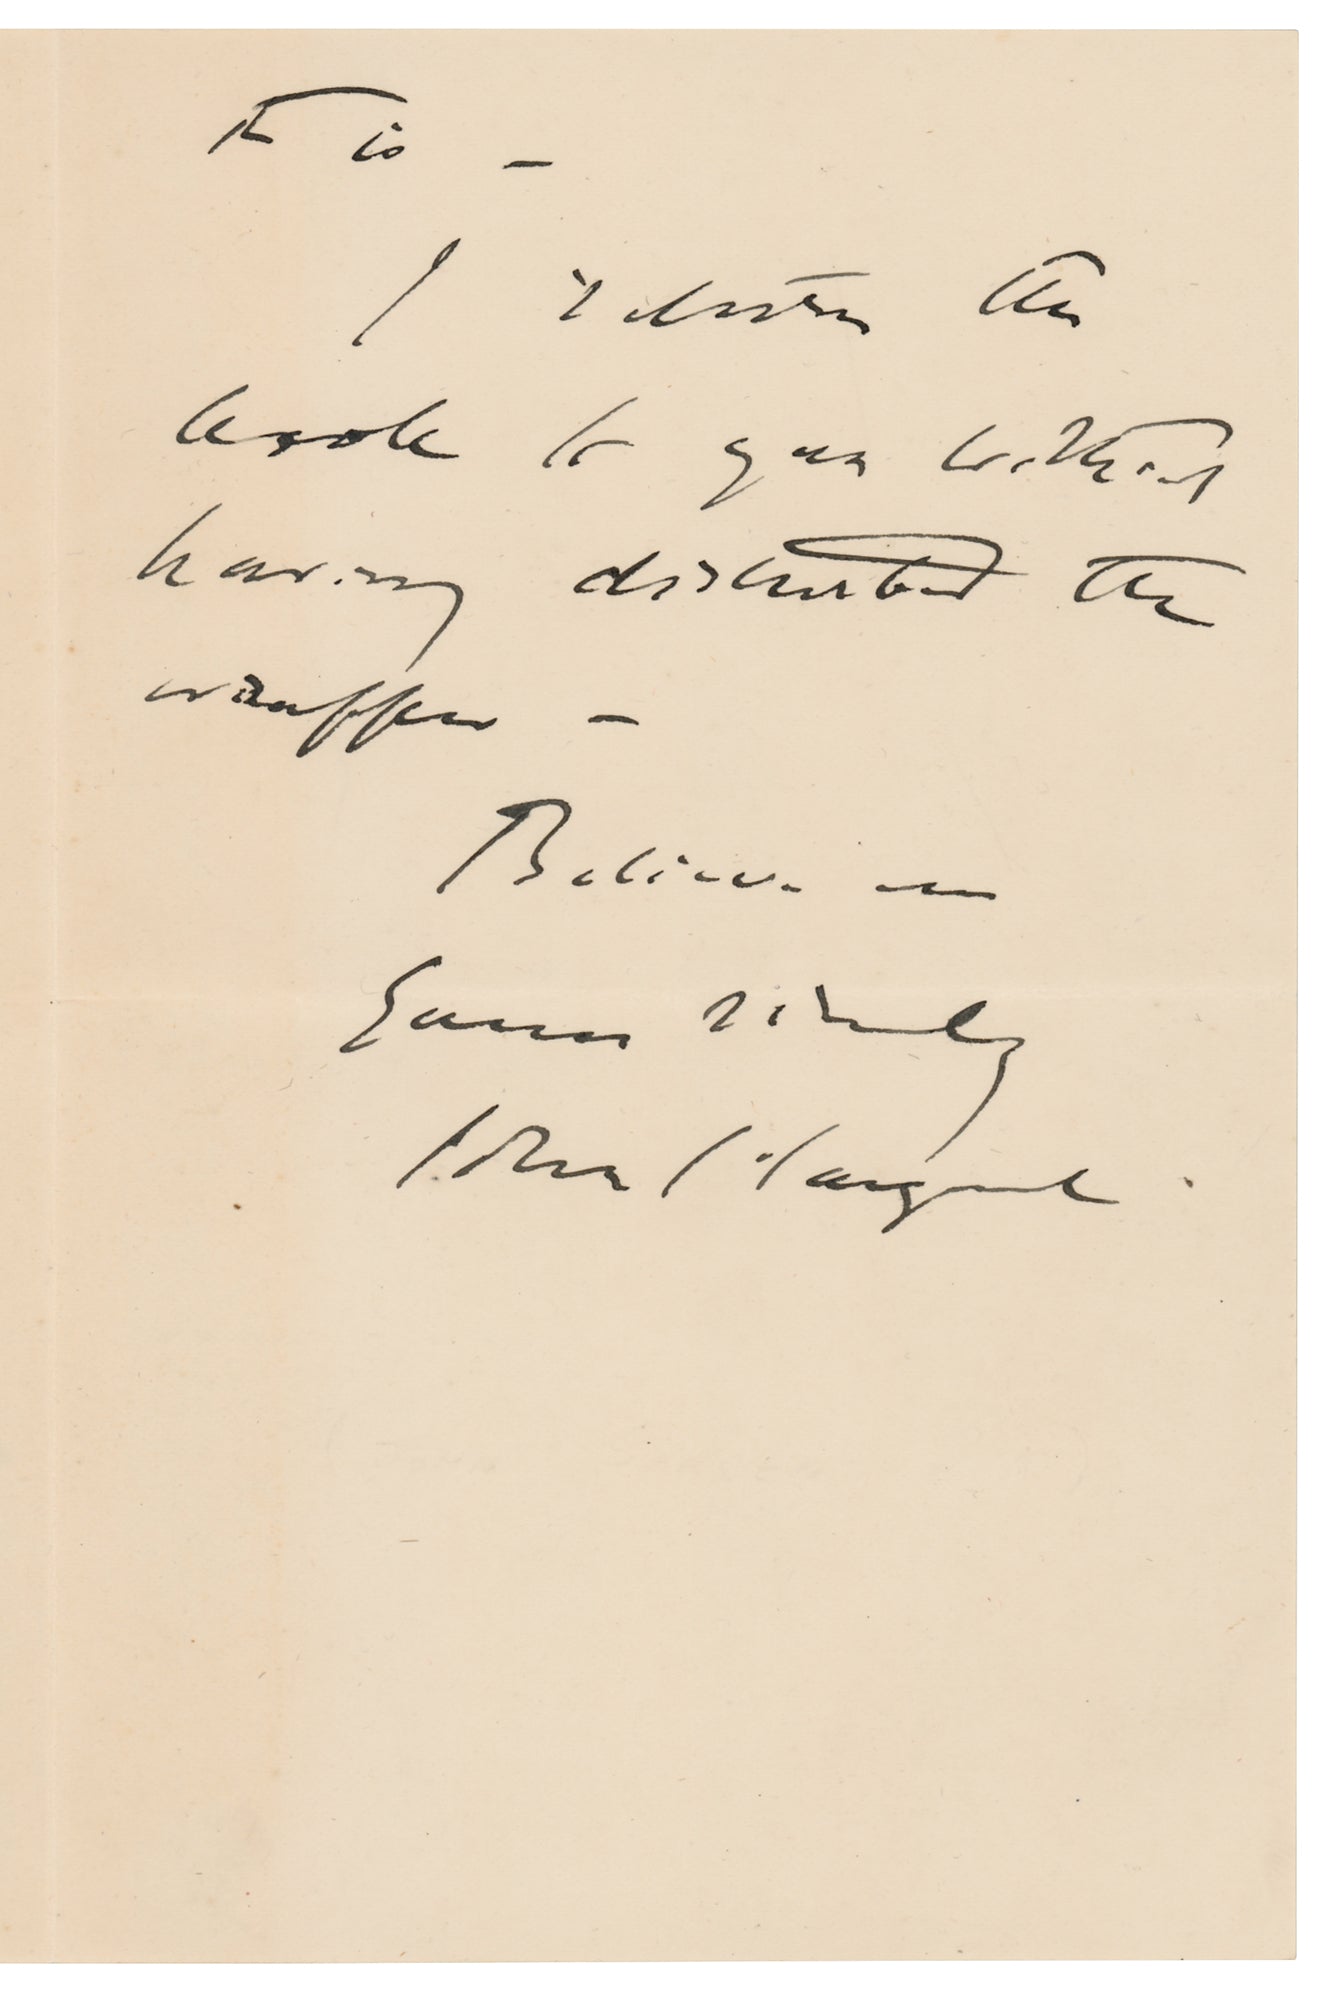 to is —
I return the
book to you without
having disturbed the
wrapper —
Believe me
Yours sincerely
John S. Sargent